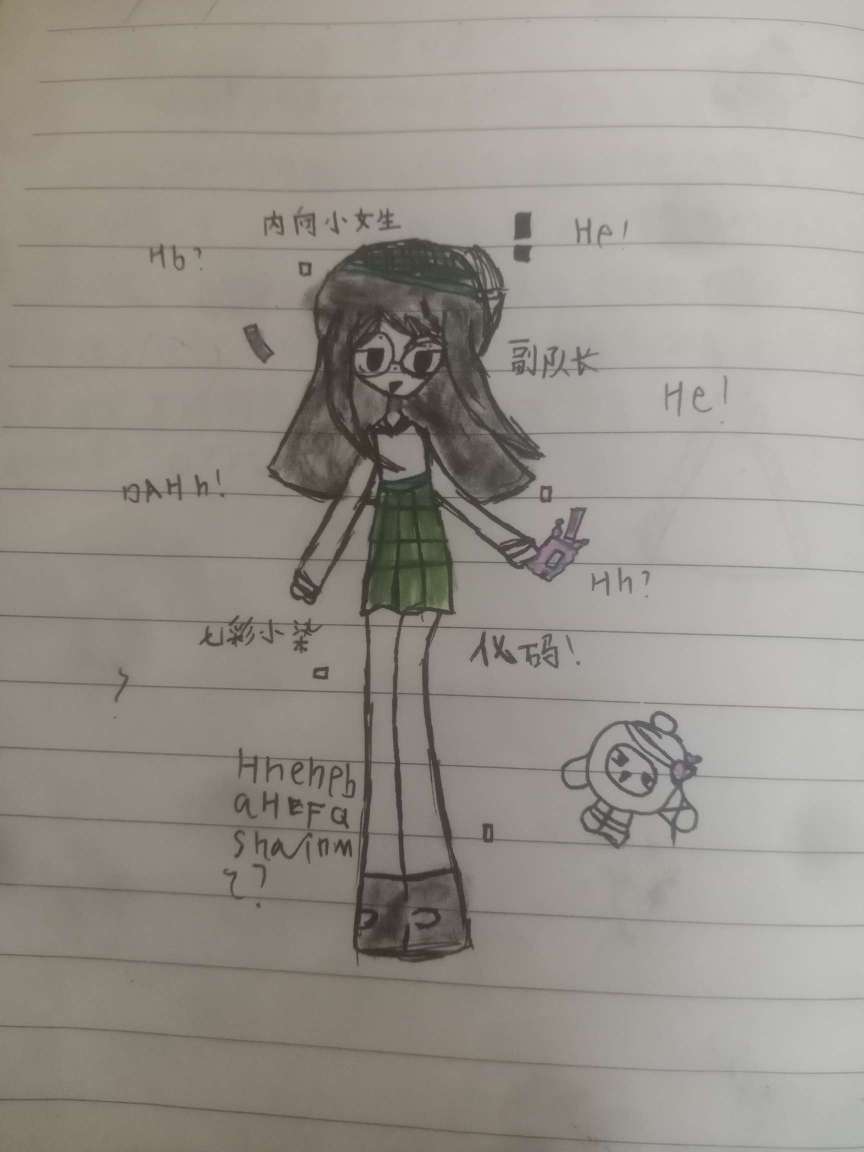 内向小女生
He!
Hb?
副队长
He!
DAHh!
Hh?
七彩小染
代码!
Hhehehb
aHEFa
shainm
z?